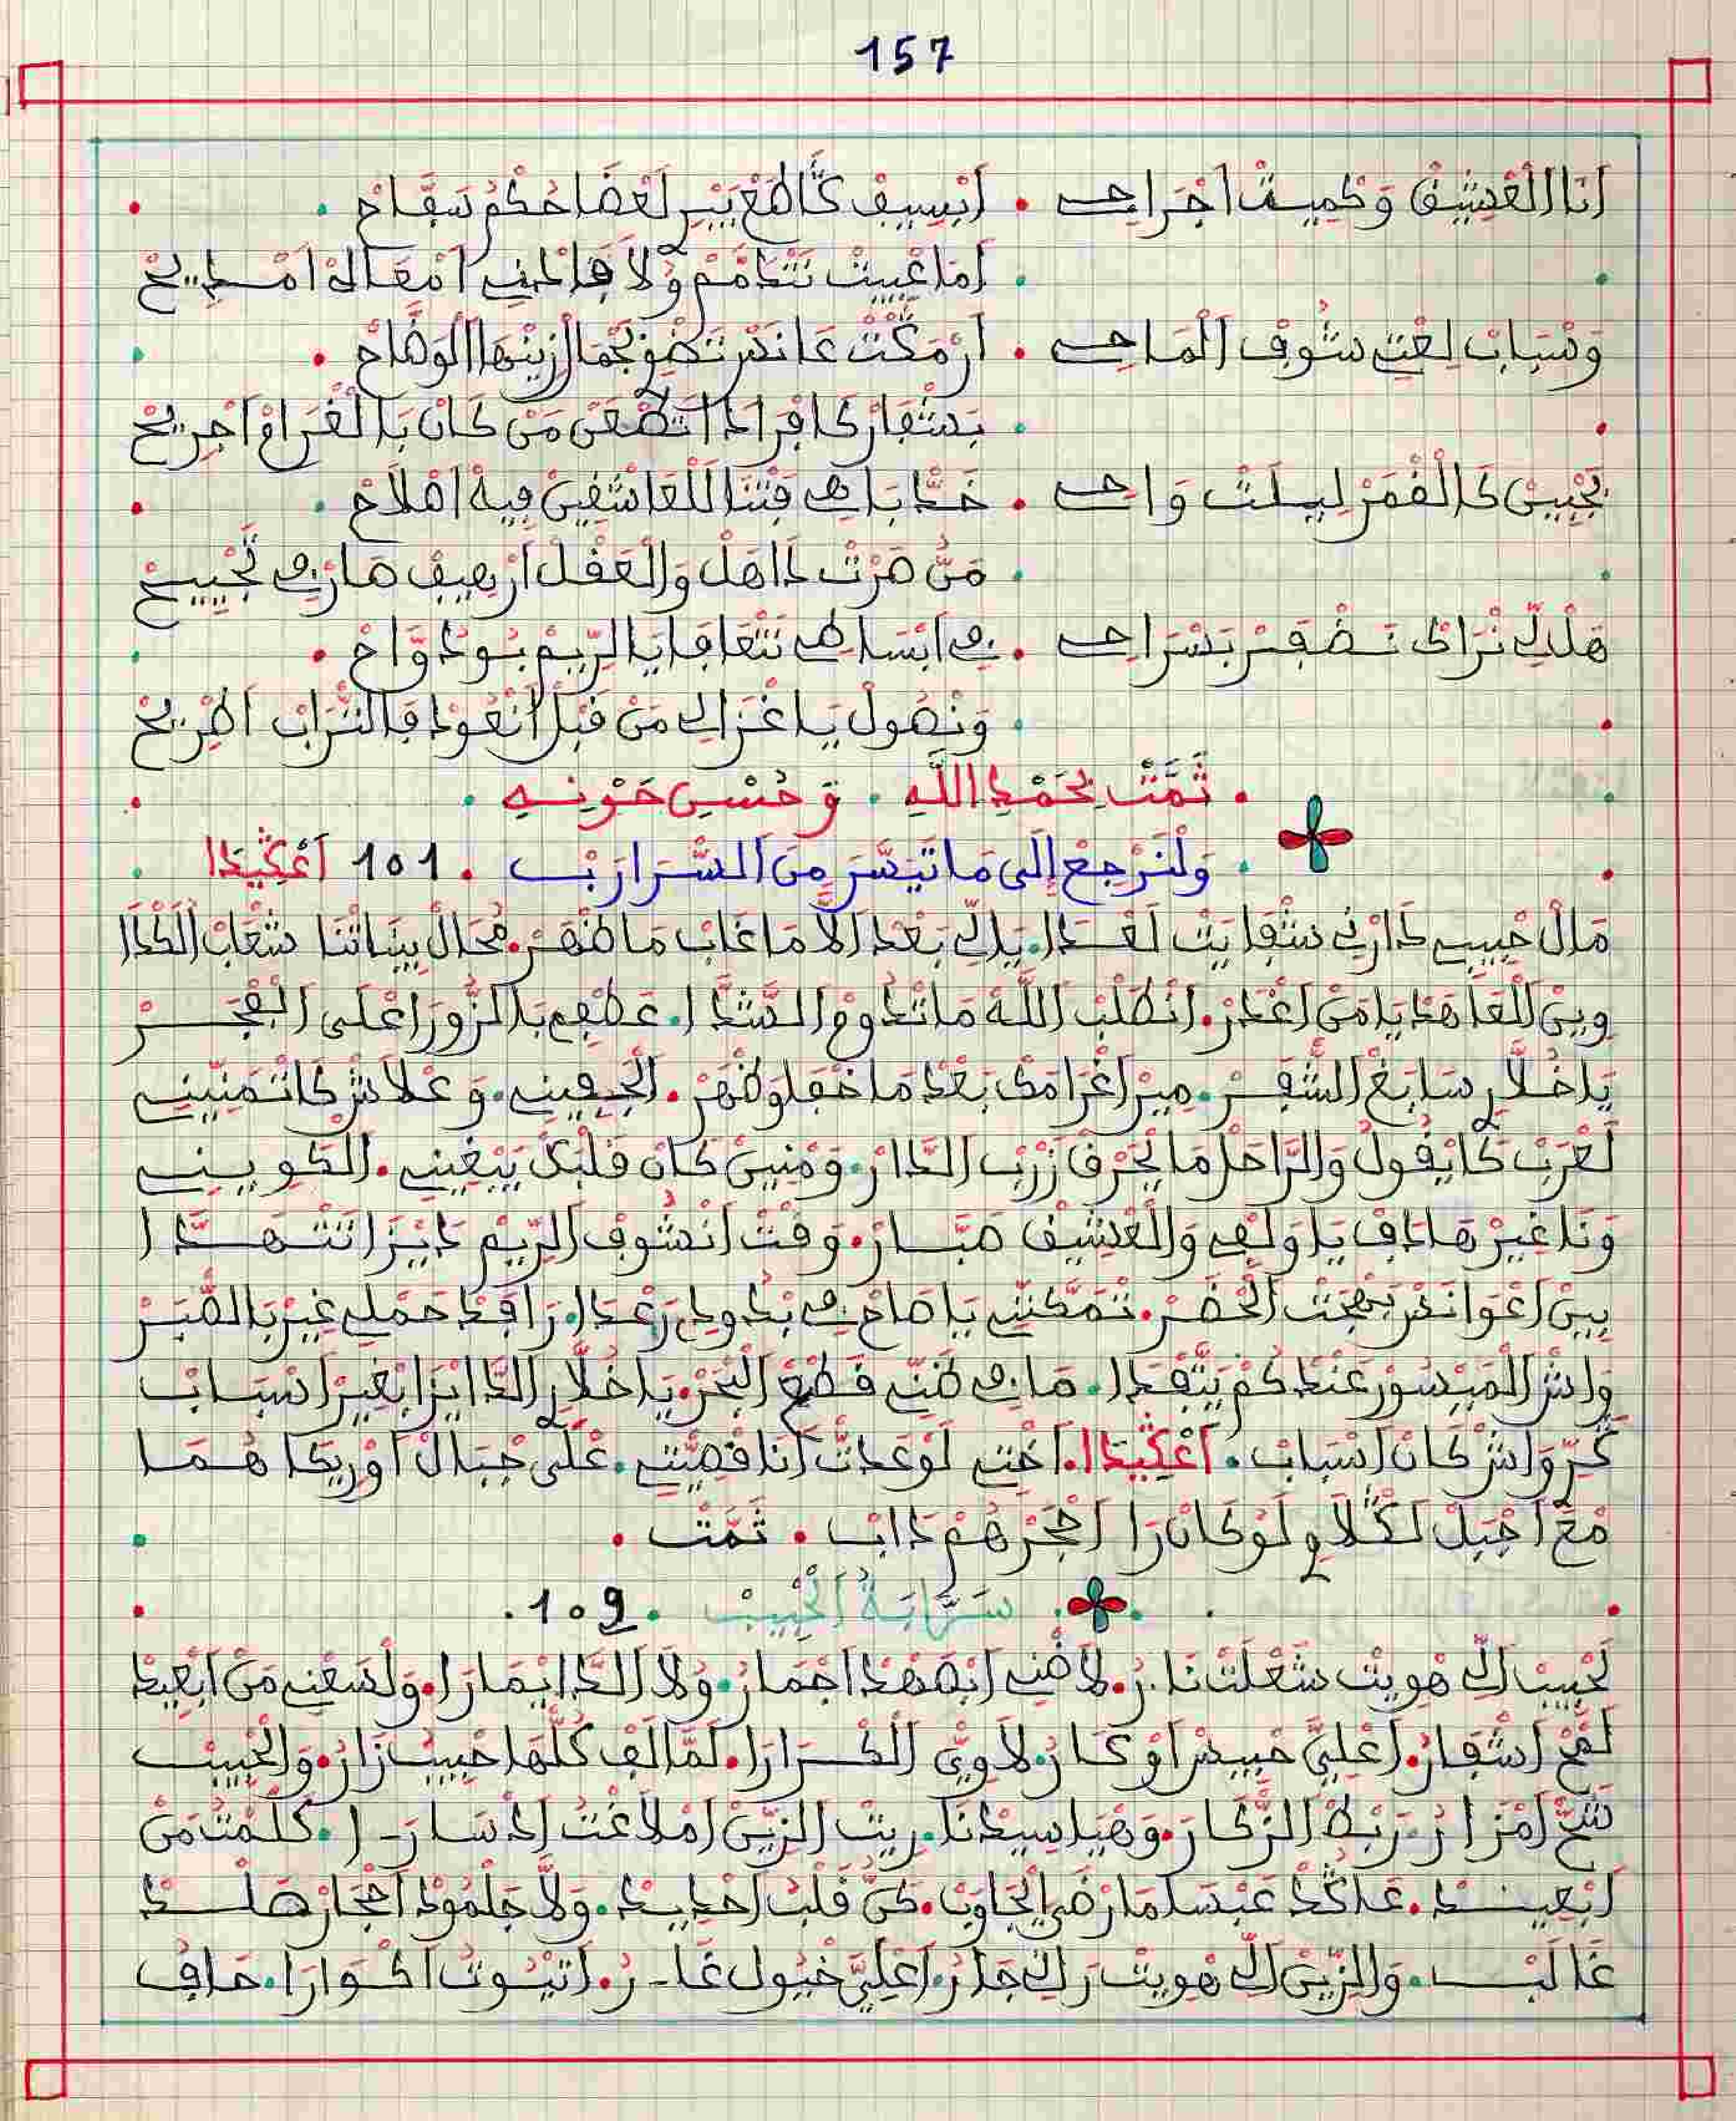 157
أنا العشيق وكميت اجراحي . ابسيف كاطع بين لعضا حكم سفاح
اما عييت نتخمم ولا فادني امقالة امديح
وسباب لعتي شوف الماحي . ارمكت عانس تضوي بجمال زينها الوضاح
بشفار كافرادا اتطعن من كان بالفراق اجريح
بجبين كالقمر ليلت واحي . خدا باهي فتنا للعاشقين فيه املاح
من صرت داهل والعقل ارهيف مازي نجيح
هلي نراك تضفر بسراحي . في ابساطي نتعافا يا الريم بوداواح
ونصول يا غزالي من قبل انعود فالتراب اطريح
تمت بحمد الله . وحسن عونه
ولنرجع إلى ما تيسر من السرارب . 101 اعكيدا
مال حبيبي دارني شفايت لعدا . يلي بعد الا ما غاب ما ظهر . محال بيناتنا شعاب الكدا
وين العاهد يا من اغدر . انطلب الله ما تدوم الشدا . عطفي بالزورا على الفجر
يا خلاي سابغ الشفر . مير اغرامك بعد ما خفا وظهر . الجفين . وعلاش كاتمنين
لعرب كايقول والراحل ما يحرق زرب الدار . ومنين كان قلبك يبغين . الكوين
ونا غير هادف يا ولفي والعشيق صبار . وقت انشوف الريم دايزا تتهدا
بين اعوانس بهجت الحضر . تمكنتي يا صاح في بدولي رعدا . رافد حملي غير بالصبر
واش الميسور عندكم يتفدا . ماني ظني قطع البحر . يا خلاي الدايزا بغير اسباب
كر واش كان اسباب . اعكيدا . اختي لوعدت أنا قصيتي . على جبال اوريكا هما
مع اجبل لكلاوي لو كان را احجرهم داب . تمت
سرابة الحبيب . 102
لحبيب الي هويت شعلت نار . لا ضني ابصهد اجمار . ولا الدا ايمارا . ولسعني من ابعيد
لمح اشفار . اعلي حبيس اوكار . لاوي الكرارا . لما الف كلها حبيب زار . والحبيب
شح امزار . ربط الزكار . وهيا سيدنا . ريت الزين املاغت ادسارا . كلمت من
ابعيد . عاكد عبسا ما رضى ايجاوب . كن قلب احديد . ولا جلمود احجار صلد
غالب . والزين الي هويت راك جار . اعلي خيول غار . اتيوت اكوارا . حاف